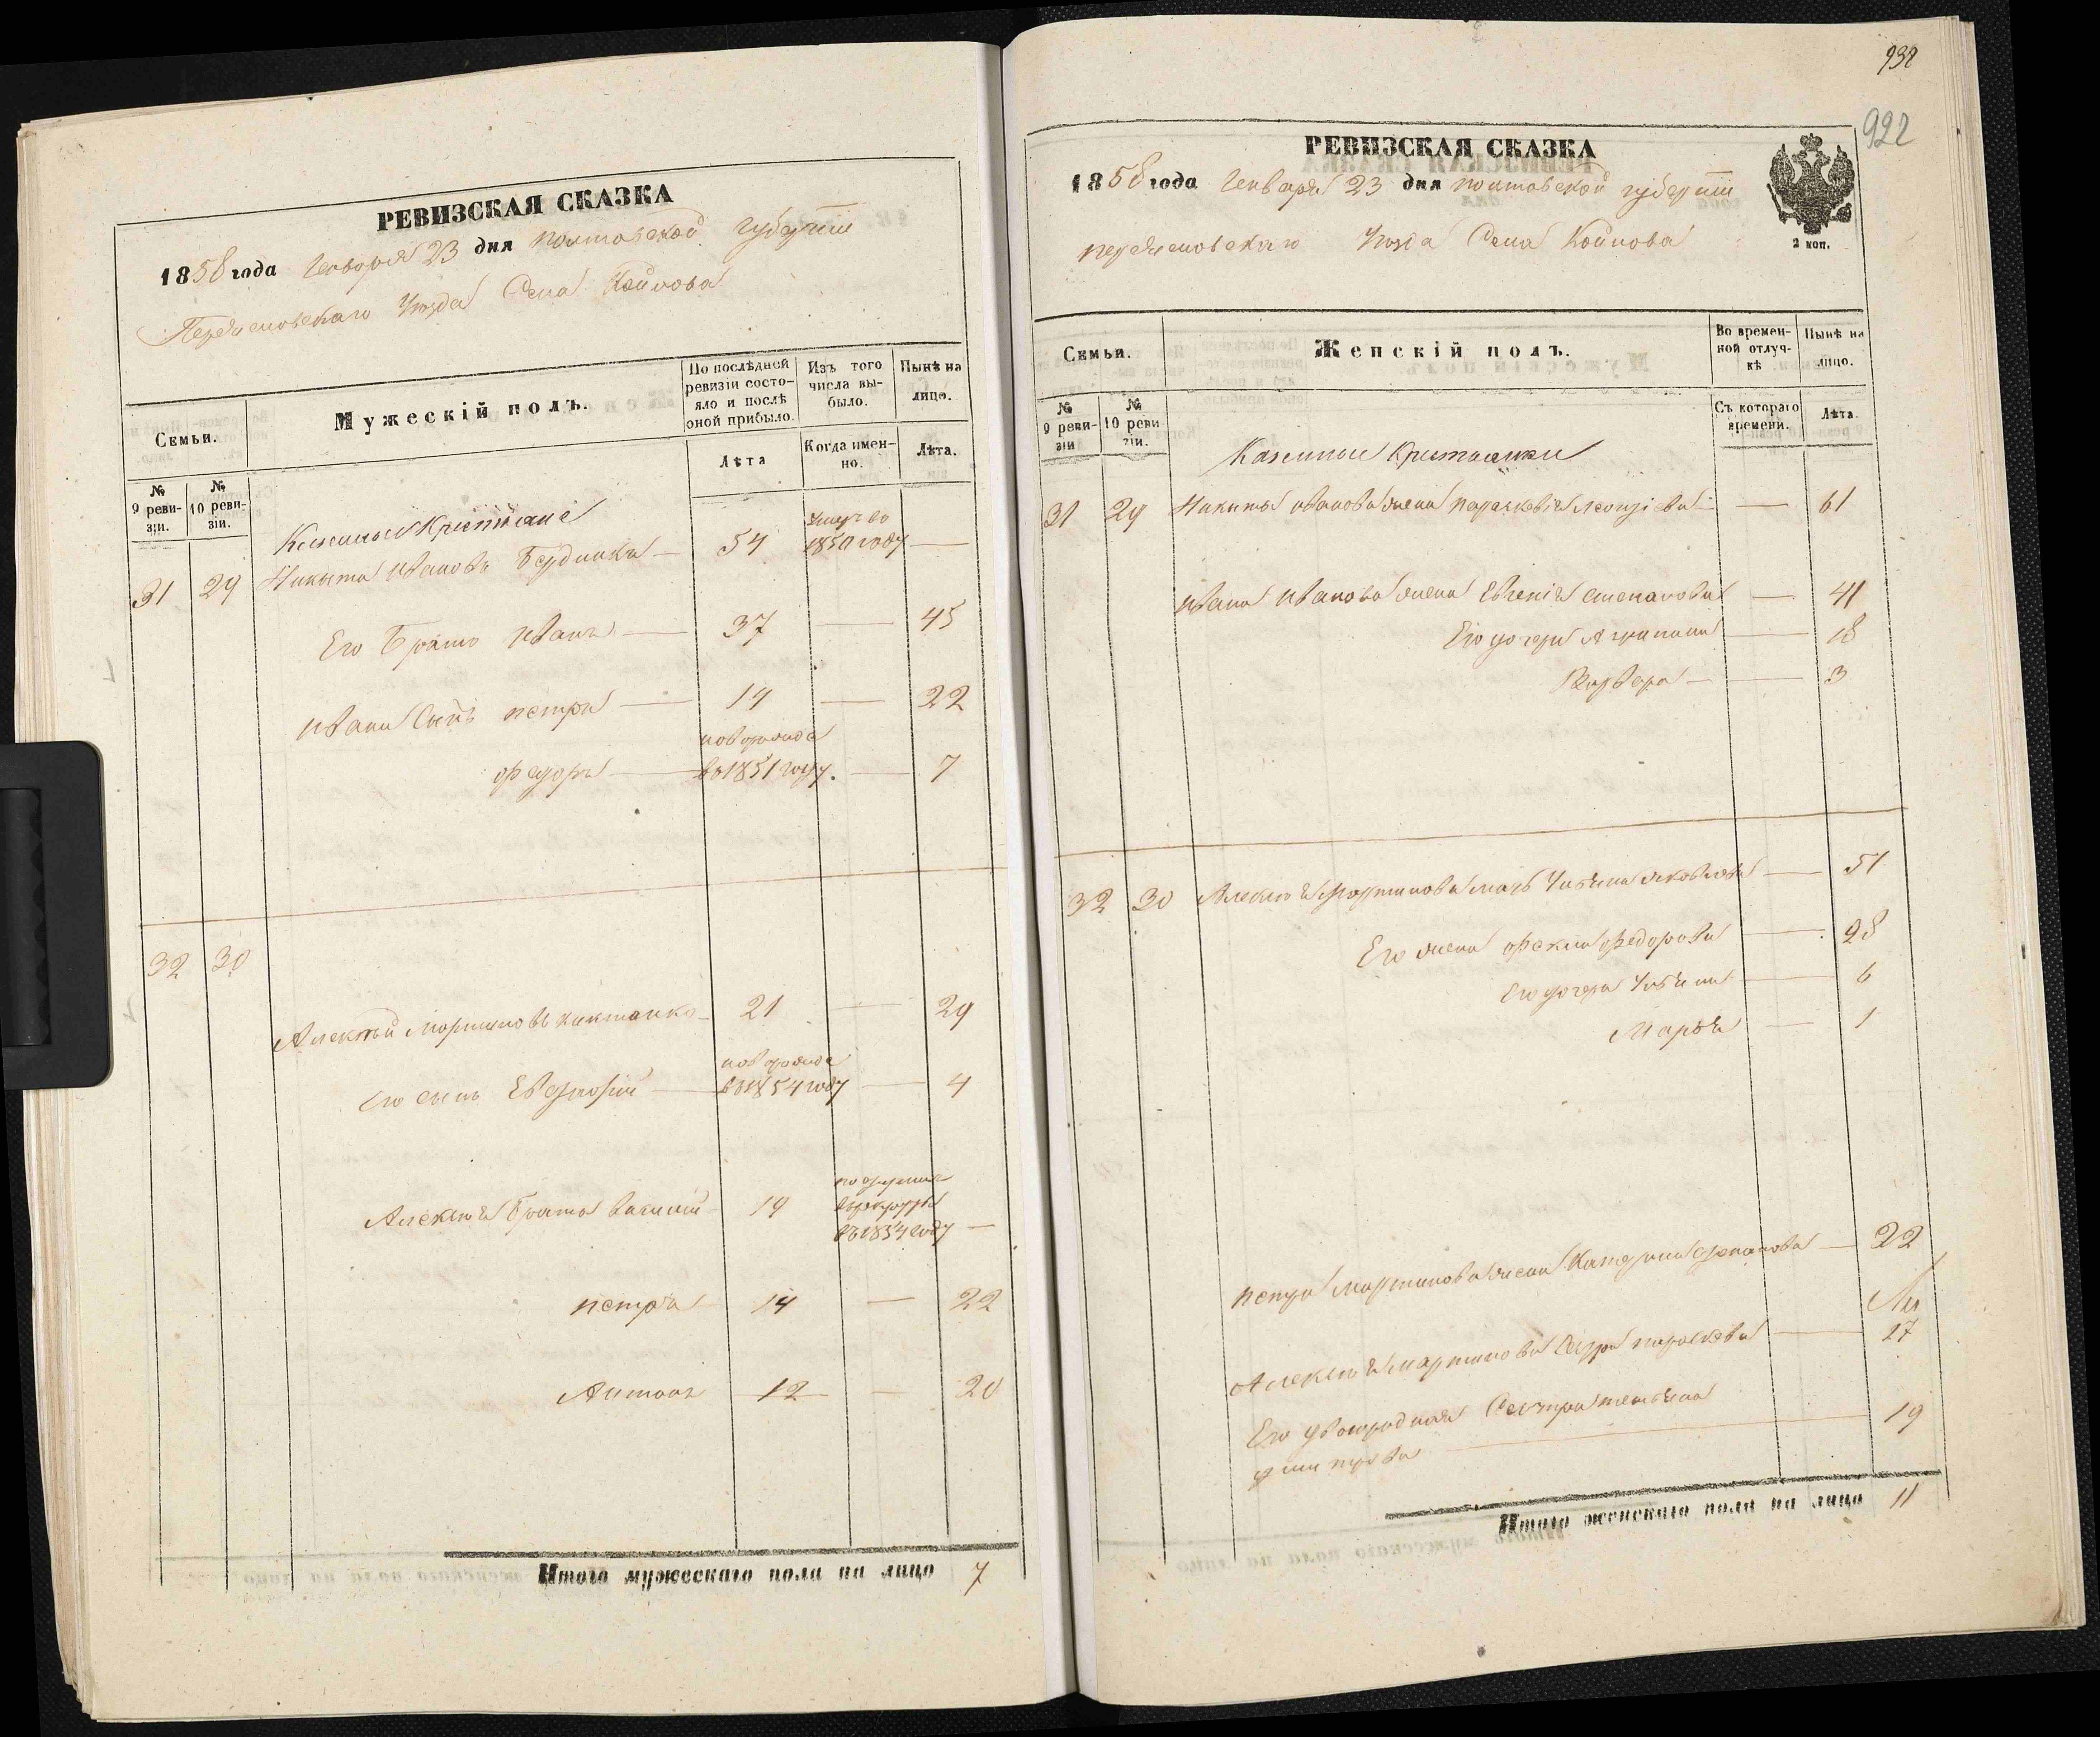 РЕВИЗСКАЯ СКАЗКА
1858 года Генваря 23 дня Полтавской губернiи
Переяславскаго Уезда Села Койлова
Семьи.
Мужескій полъ.
По послѣдней ревизіи состояло и послѣ оной прибыло.
Изъ того числа выбыло.
Нынѣ на лицо.
Лѣта
Когда именно.
Лѣта.
№ 9 ревизіи.
№ 10 ревизіи.
Казенные Крестьяне
31 29 Никита Ивановъ 54 Умеръ въ 1850 году —
Его Братъ Иванъ — 37 — 45
Ивана Сынъ Петръ — 14 — 22
Федоръ — новорожде въ 1851 году. — 7
32 30
Алексѣй Мартиновъ 21 — 29
Его сынъ — новорожде въ 1854 году — 4
Алексѣя Братъ Василий 19 въ 1854 году —
Петръ 14 — 22
Антонъ 12 — 20
Итого мужескаго пола на лицо 7
932
922
РЕВИЗСКАЯ СКАЗКА
1858 года Генваря 23 дня Полтавской губернiи
2 коп.
Переяславскаго Уезда Села Койлова
Семьи.
Женскій полъ.
Во временной отлучкѣ
Нынѣ на лицо.
№ 9 ревизіи
№ 10 ревизіи.
Съ котораго времени.
Лѣта.
Казенные Крестьянки
31 29 Никиты Иванова жена Параскевiя — — 61
Ивана Иванова жена Евгенiя Степанова — 41
Его дочери Агрипина — 18
Варвара — — 3
32 30 Алексѣя Мартинова мать Ульяна Яковлева — 51
Его жена Фекла Федорова — 28
Его дочери Ульяна — 6
Марья — 1
Петра Мартинова жена Катерина — 22
Алексѣя Мартинова Сестра Параскева — 17
Его двоюродная Сестра Татьяна
— 19
Итого женскаго пола на лицо 11